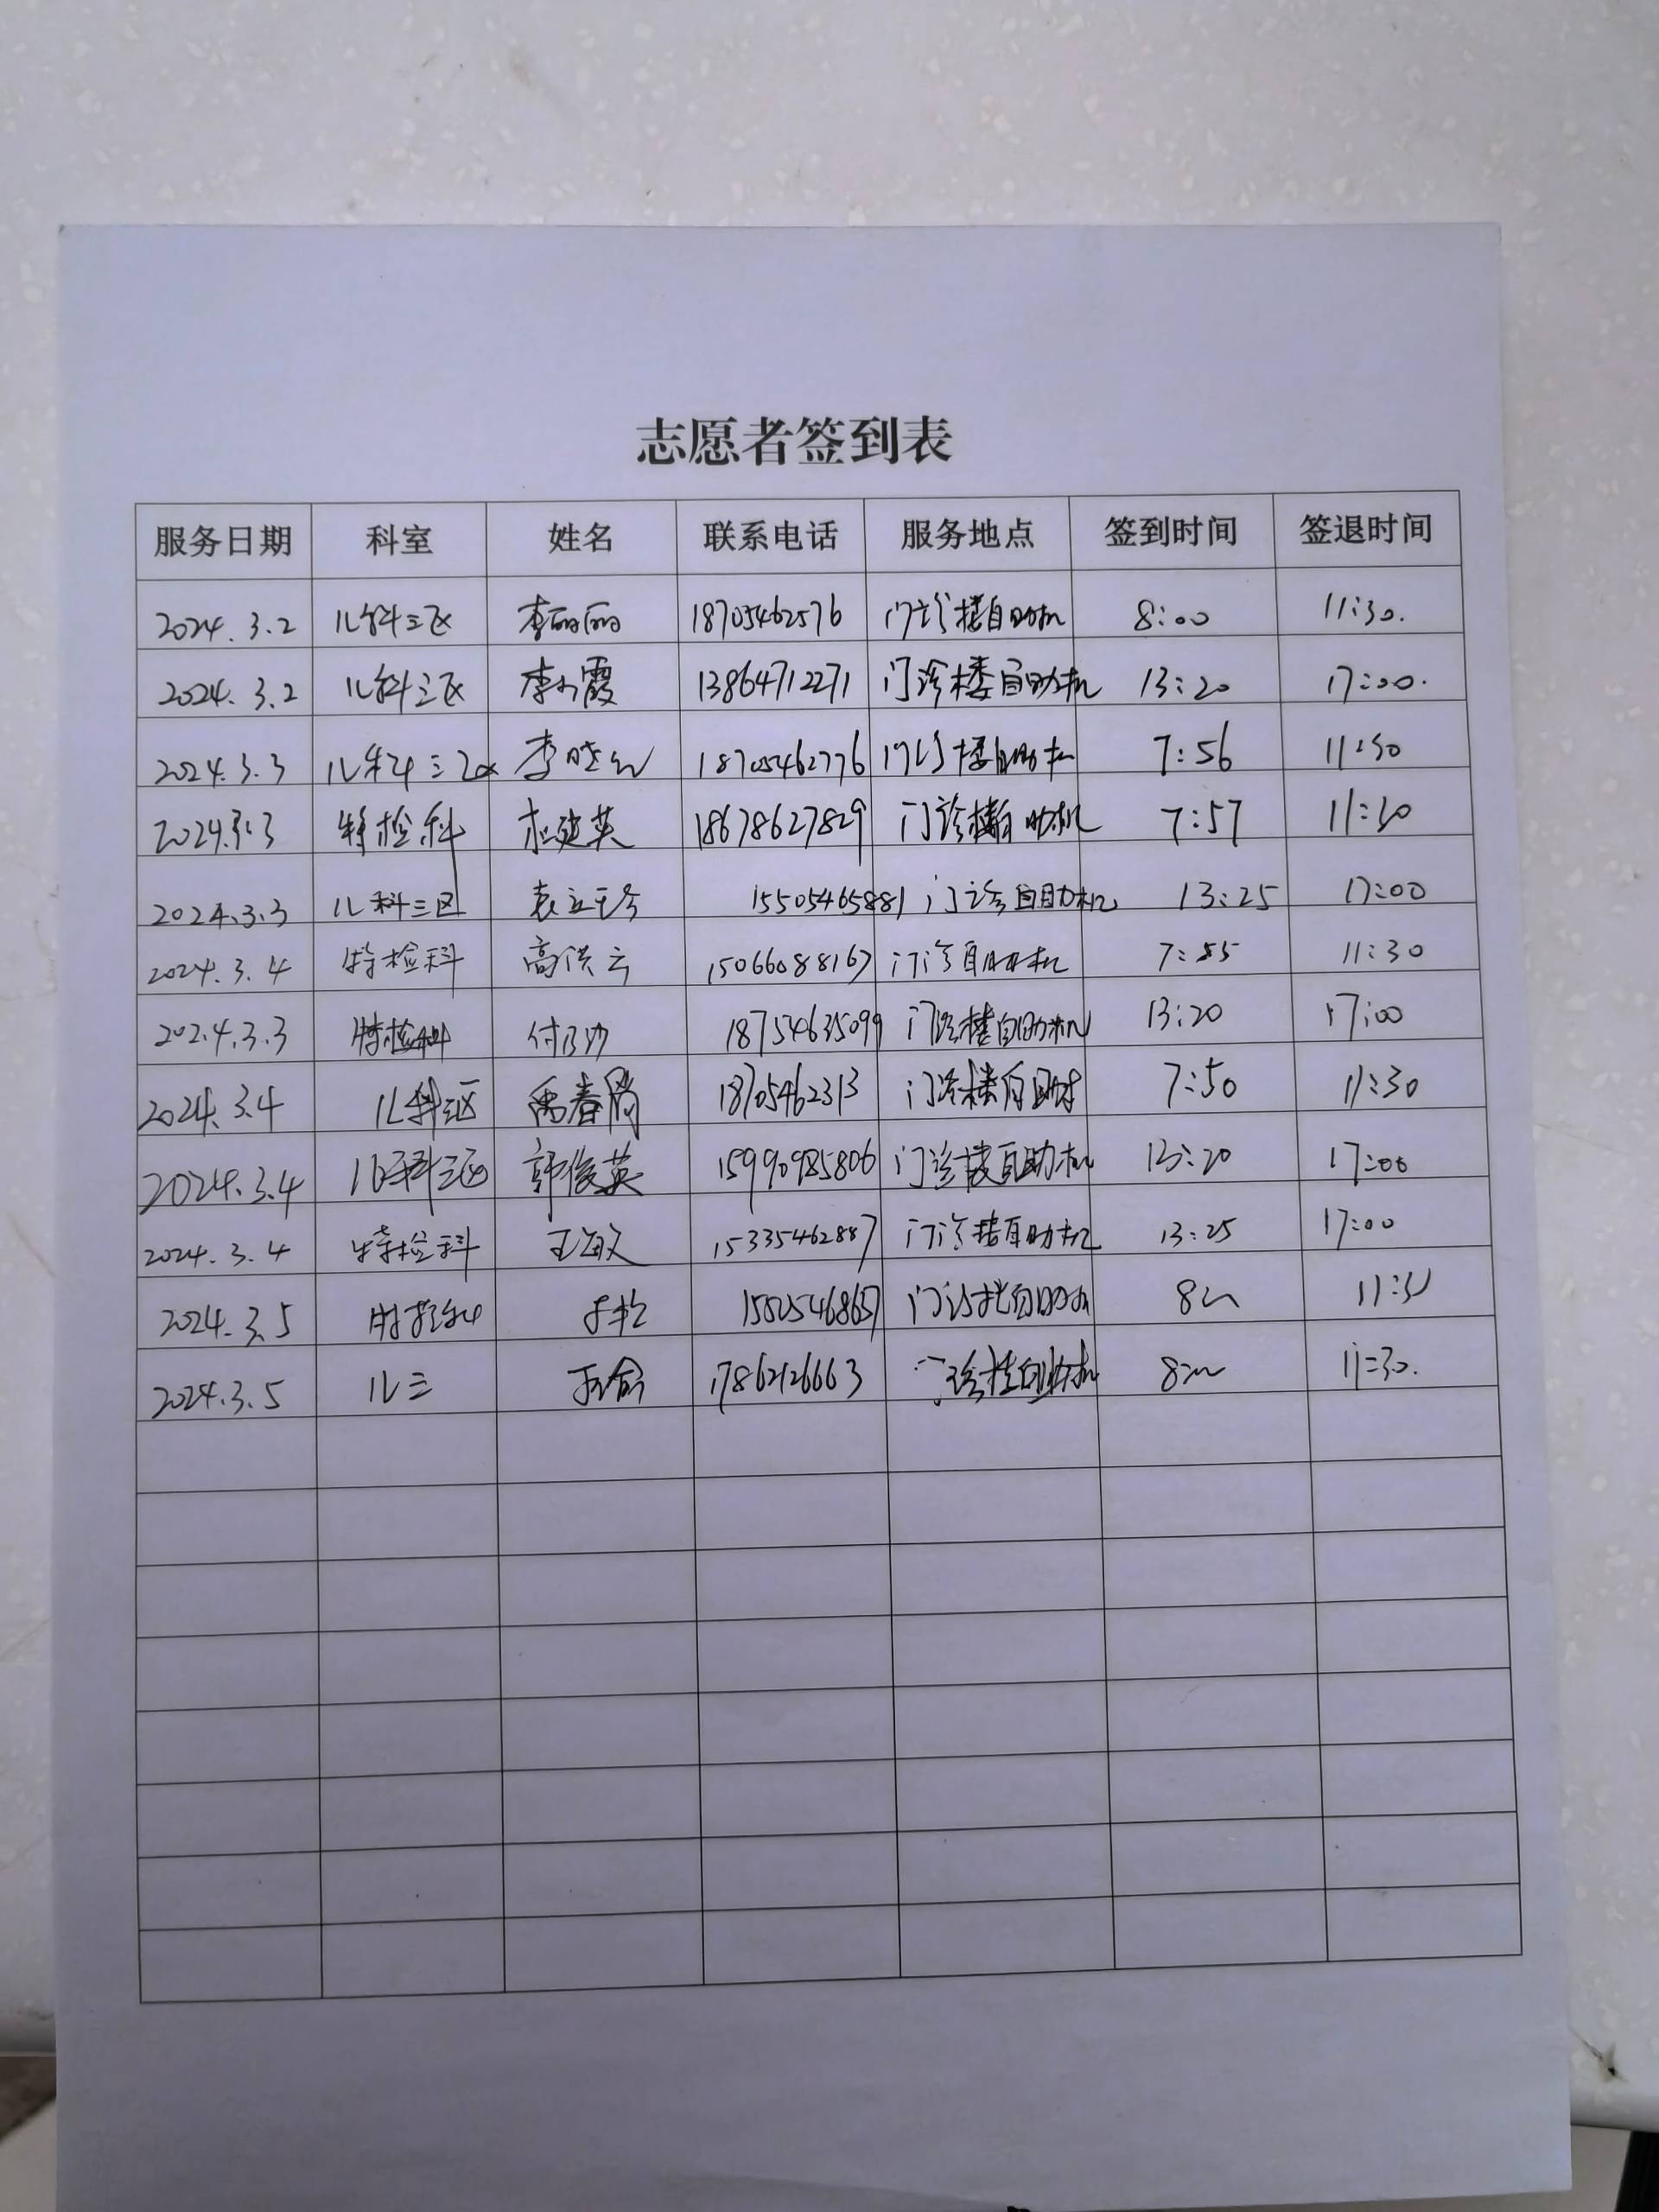 志愿者签到表
服务日期 科室 姓名 联系电话 服务地点 签到时间 签退时间
2024.3.2 儿科三区 李丽丽 18705462576 门诊楼自助机 8:00 11:30.
2024.3.2 儿科三区 李小霞 13864712271 门诊楼自助机 13:20 17:00.
2024.3.3 儿科三区 李晓红 18705462776 门诊楼自助机 7:56 11:30
2024.3.3 特检科 杜建英 18678627829 门诊楼自助机 7:57 11:30
2024.3.3 儿科三区 袁立 15505465881 门诊自助机 13:25 17:00
2024.3.4 特检科 高洪云 15066088167 门诊自助机 7:55 11:30
2024.3.3 特检科 18754635099 门诊楼自助机 13:20 17:00
2024.3.4 儿科三区 禹春 18705462313 门诊楼自助机 7:50 11:30
2024.3.4 儿科三区 郭俊英 15990985806 门诊楼自助机 13:20 17:00
2024.3.4 特检科 王敏 15335462887 门诊楼自助机 13:25 17:00
2024.3.5 门诊楼自助机
2024.3.5 儿三 17862126663 门诊楼自助机 11:30.